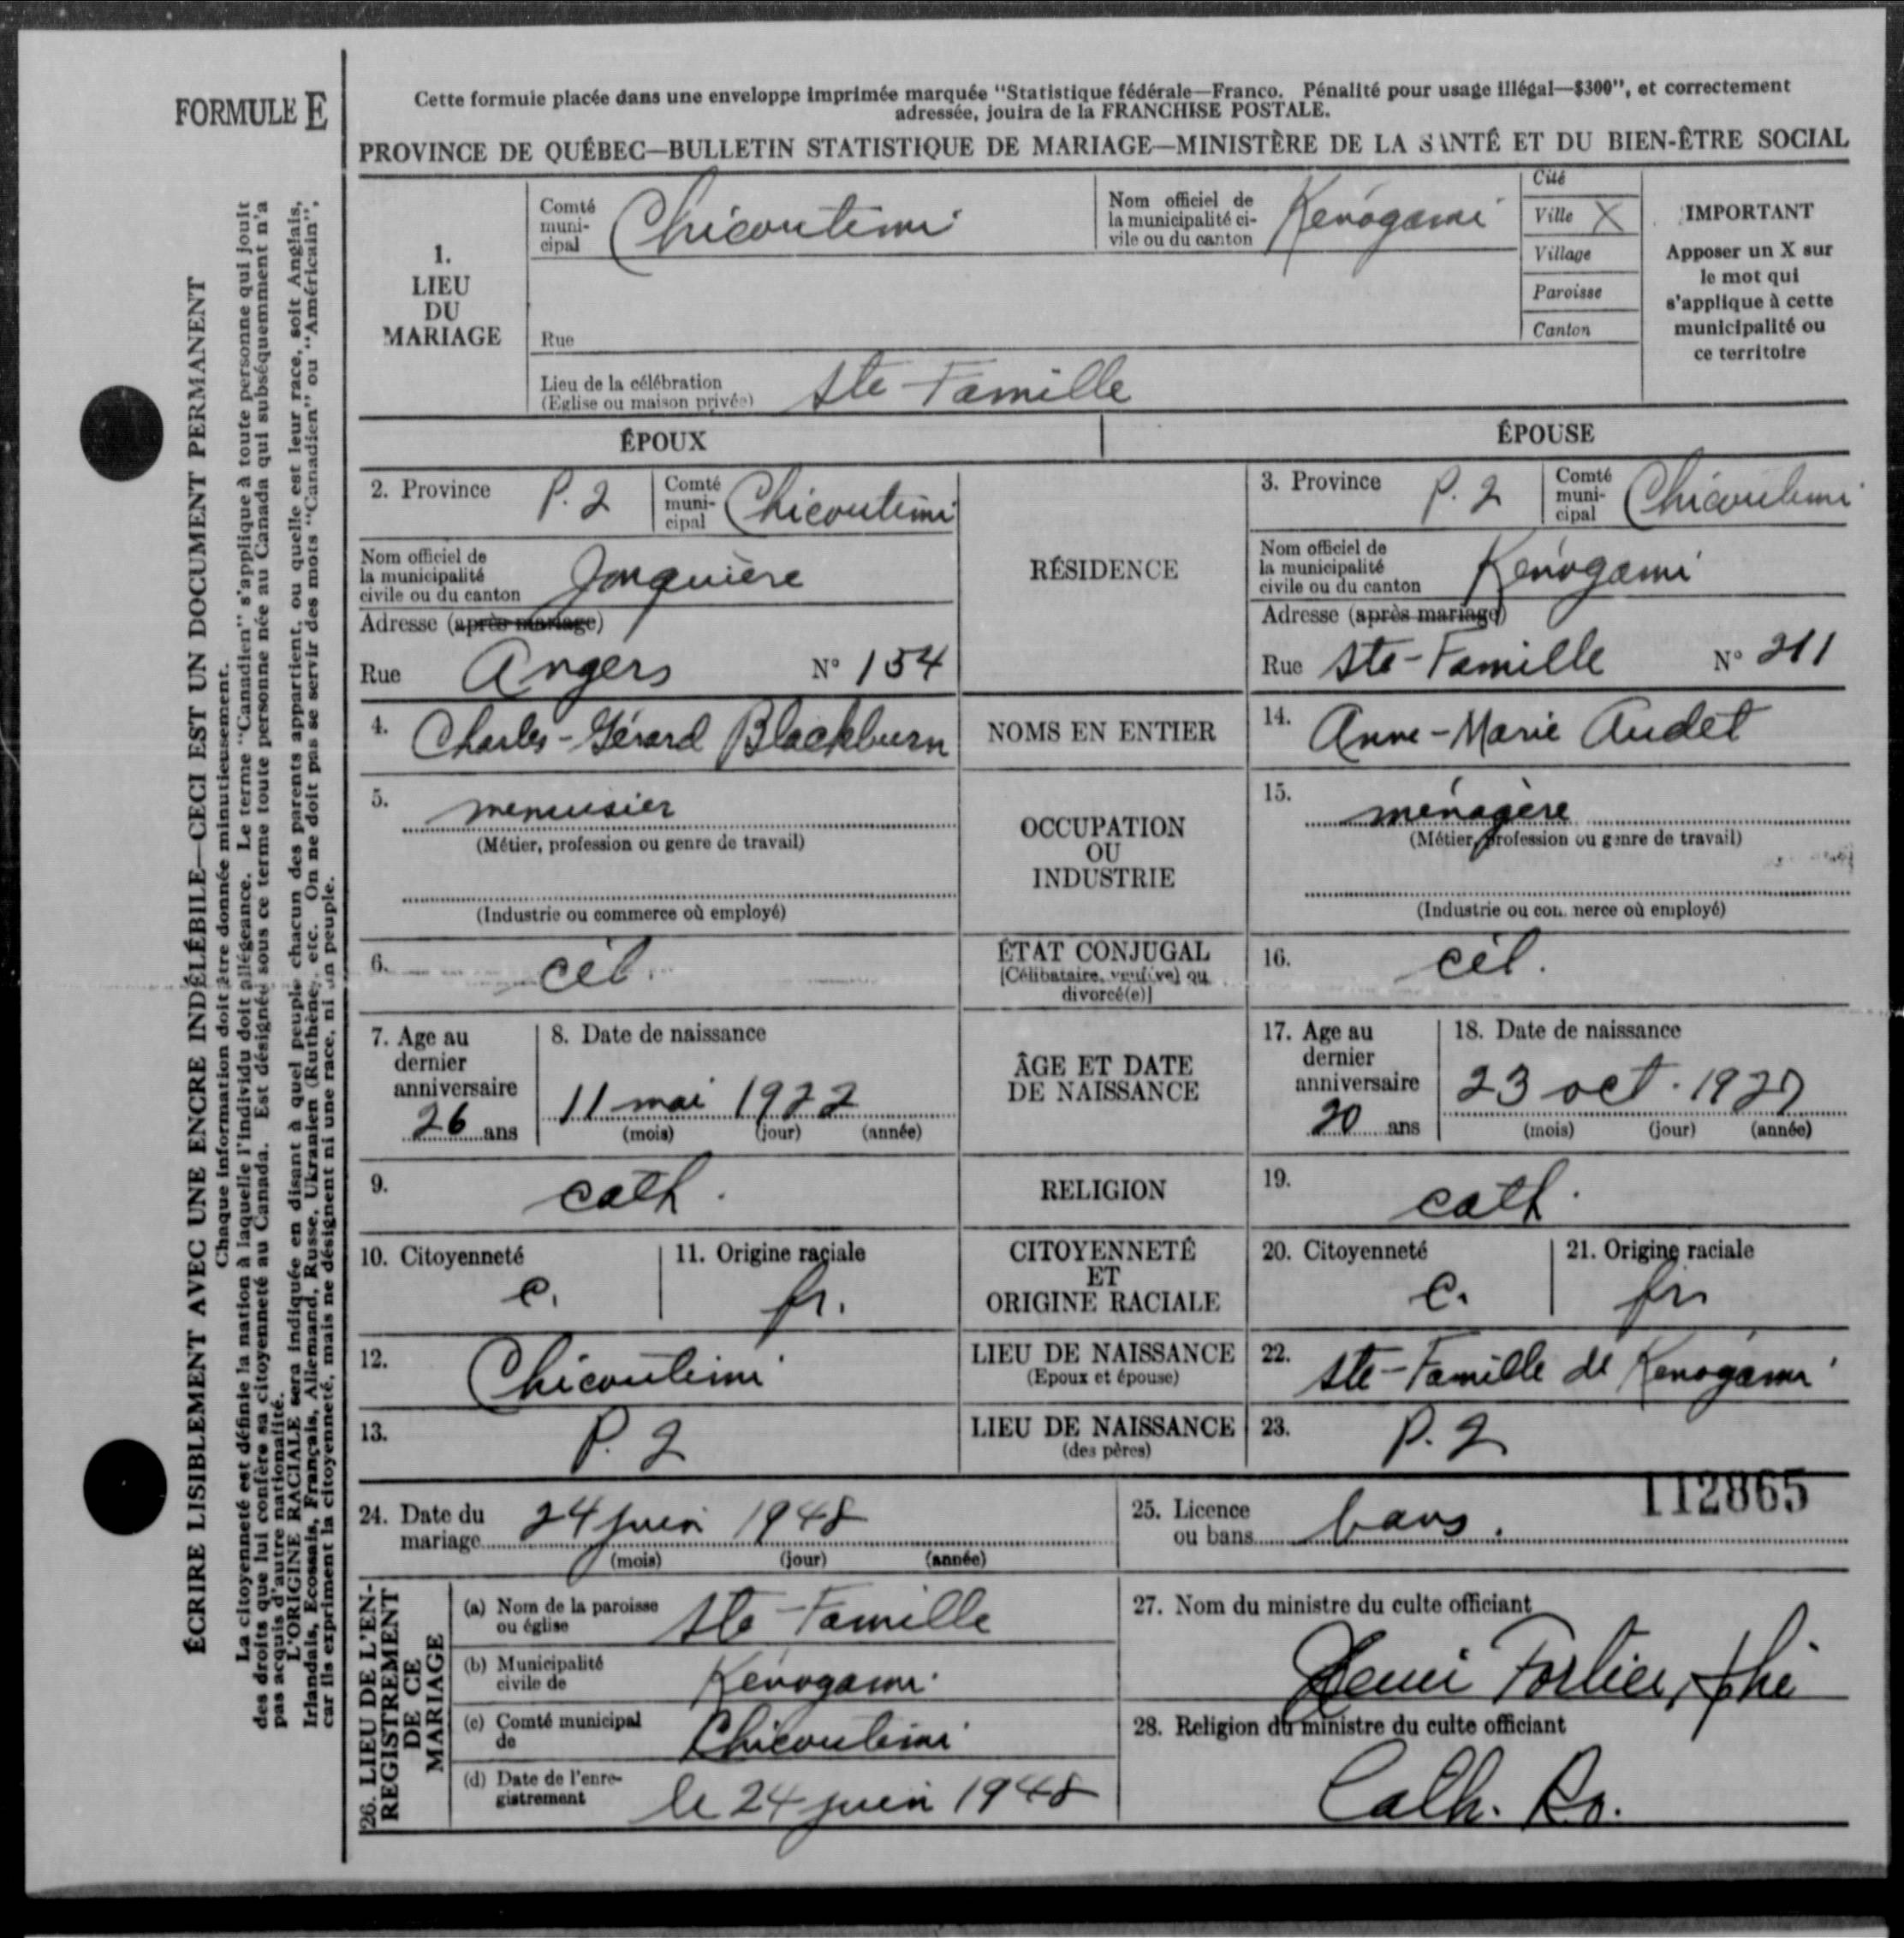 FORMULE E
ÉCRIRE LISIBLEMENT AVEC UNE ENCRE INDÉLÉBILE—CECI EST UN DOCUMENT PERMANENT
Chaque information doit être donnée minutieusement.
La citoyenneté est définie la nation à laquelle l'individu doit allégeance. Le terme "Canadien" s'applique à toute personne qui jouit
des droits que lui confère sa citoyenneté au Canada. Est désignée sous ce terme toute personne née au Canada qui subséquemment n'a
pas acquis d'autre nationalité.
L'ORIGINE RACIALE sera indiquée en disant à quel peuple chacun des parents appartient, ou quelle est leur race, soit Anglais,
Irlandais, Ecossais, Français, Allemand, Russe, Ukranien (Ruthène), etc. On ne doit pas se servir des mots "Canadien" ou "Américain",
car ils expriment la citoyenneté, mais ne désignent ni une race, ni un peuple.
Cette formule placée dans une enveloppe imprimée marquée "Statistique fédérale—Franco. Pénalité pour usage illégal—$300", et correctement
adressée, jouira de la FRANCHISE POSTALE.
PROVINCE DE QUÉBEC—BULLETIN STATISTIQUE DE MARIAGE—MINISTÈRE DE LA SANTÉ ET DU BIEN-ÊTRE SOCIAL
1.
LIEU
DU
MARIAGE
Comté
muni-
cipal
Chicoutimi
Nom officiel de
la municipalité ci-
vile ou du canton
Kénogami
Cité
Ville X
Village
Paroisse
Canton
IMPORTANT
Apposer un X sur
le mot qui
s'applique à cette
municipalité ou
ce territoire
Rue
Lieu de la célébration
(Eglise ou maison privée)
Ste-Famille
ÉPOUX
ÉPOUSE
2. Province P. Q
Comté
muni-
cipal
Chicoutimi
RÉSIDENCE
3. Province P. Q
Comté
muni-
cipal
Chicoutimi
Nom officiel de
la municipalité
civile ou du canton
Jonquière
Nom officiel de
la municipalité
civile ou du canton
Kénogami
Adresse (après mariage)
Rue Angers N° 154
Adresse (après mariage)
Rue Ste-Famille N° 211
4. Charles-Gérard Blackburn
NOMS EN ENTIER
14. Anne-Marie Audet
5. menuisier
(Métier, profession ou genre de travail)
(Industrie ou commerce où employé)
OCCUPATION
OU
INDUSTRIE
15. ménagère
(Métier, profession ou genre de travail)
(Industrie ou commerce où employé)
6. cél.
ÉTAT CONJUGAL
[Célibataire, veuf(ve) ou
divorcé(e)]
16. cél.
7. Age au
dernier
anniversaire
26 ans
8. Date de naissance
11 mai 1922
(mois) (jour) (année)
ÂGE ET DATE
DE NAISSANCE
17. Age au
dernier
anniversaire
20 ans
18. Date de naissance
23 oct. 1927
(mois) (jour) (année)
9. cath.
RELIGION
19. cath.
10. Citoyenneté
c.
11. Origine raciale
fr.
CITOYENNETÉ
ET
ORIGINE RACIALE
20. Citoyenneté
c.
21. Origine raciale
fr.
12. Chicoutimi
LIEU DE NAISSANCE
(Epoux et épouse)
22. Ste-Famille de Kénogami
13. P. Q
LIEU DE NAISSANCE
(des pères)
23. P. Q
112865
24. Date du
mariage 24 juin 1948
(mois) (jour) (année)
25. Licence
ou bans bans.
26. LIEU DE L'EN-
REGISTREMENT
DE CE
MARIAGE
(a) Nom de la paroisse
ou église
Ste-Famille
(b) Municipalité
civile de
Kénogami
(c) Comté municipal
de
Chicoutimi
(d) Date de l'enre-
gistrement
le 24 juin 1948
27. Nom du ministre du culte officiant
Henri Fortier, ptre
28. Religion du ministre du culte officiant
Cath. Ro.